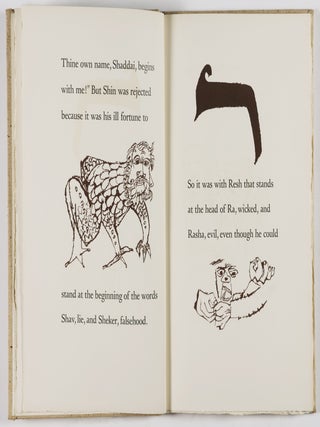 Thine own name, Shaddai, begins
with me!" But Shin was rejected
because it was his ill fortune to
stand at the beginning of the words
Shav, lie, and Sheker, falsehood.
ר
So it was with Resh that stands
at the head of Ra, wicked, and
Rasha, evil, even though he could